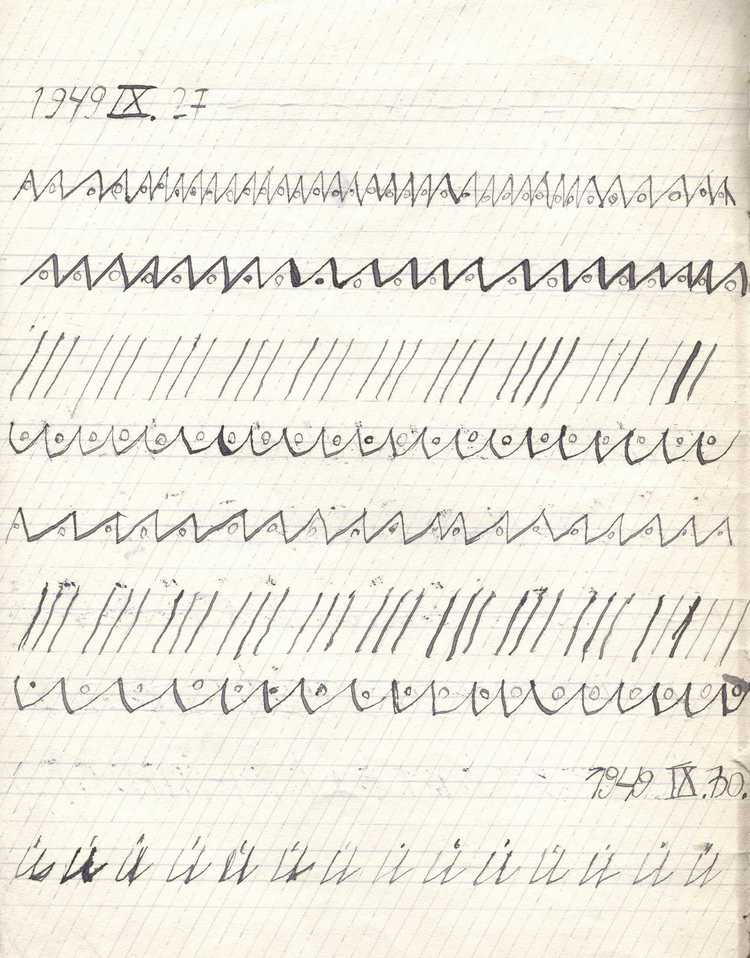 1949 IX. 27
1949 IX. 30.